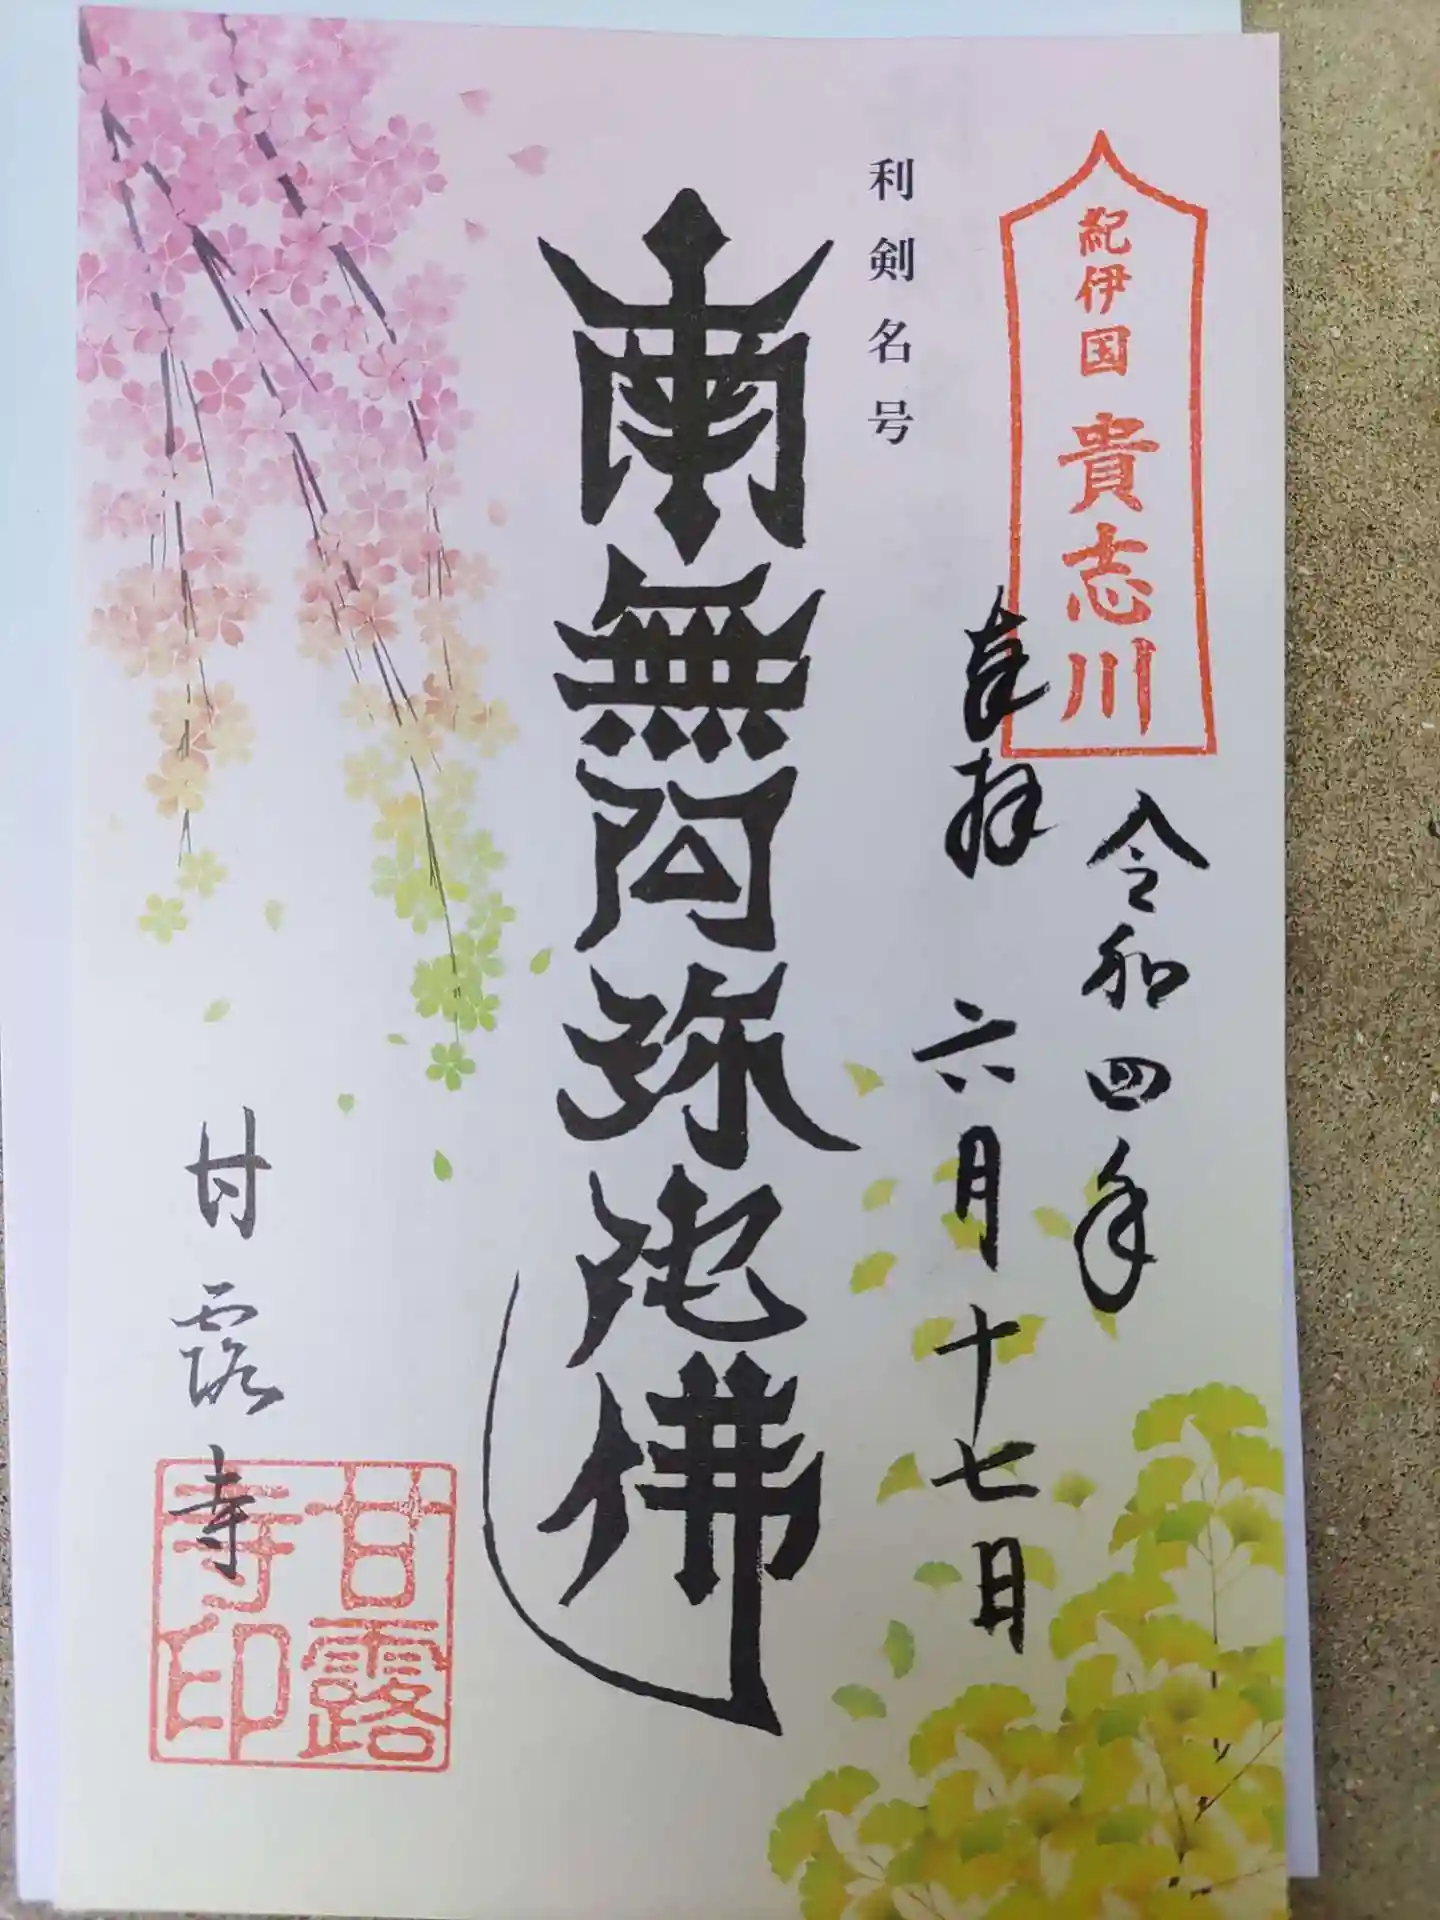 紀伊国 貴志川
令和四年
奉拝 六月十七日
利剣名号
南無阿弥陀佛
甘露寺
甘露寺印